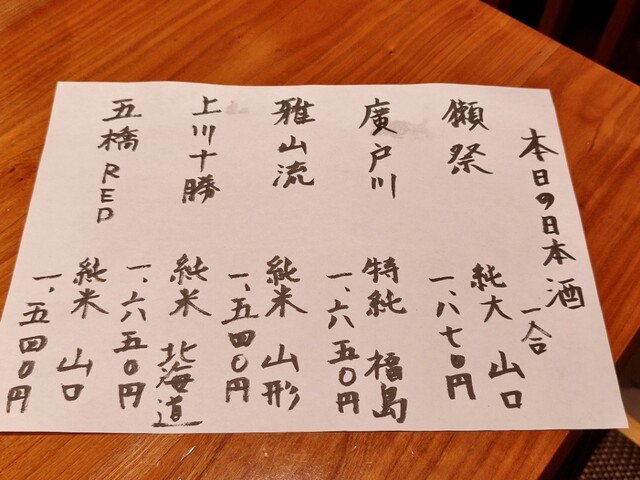 本日の日本酒
一合
獺祭
純大 山口
一、八七〇円
廣戸川
特純 福島
一、六五〇円
雅山流
純米 山形
一、五四〇円
上川十勝
純米 北海道
一、六五〇円
五橋RED
純米 山口
一、五四〇円